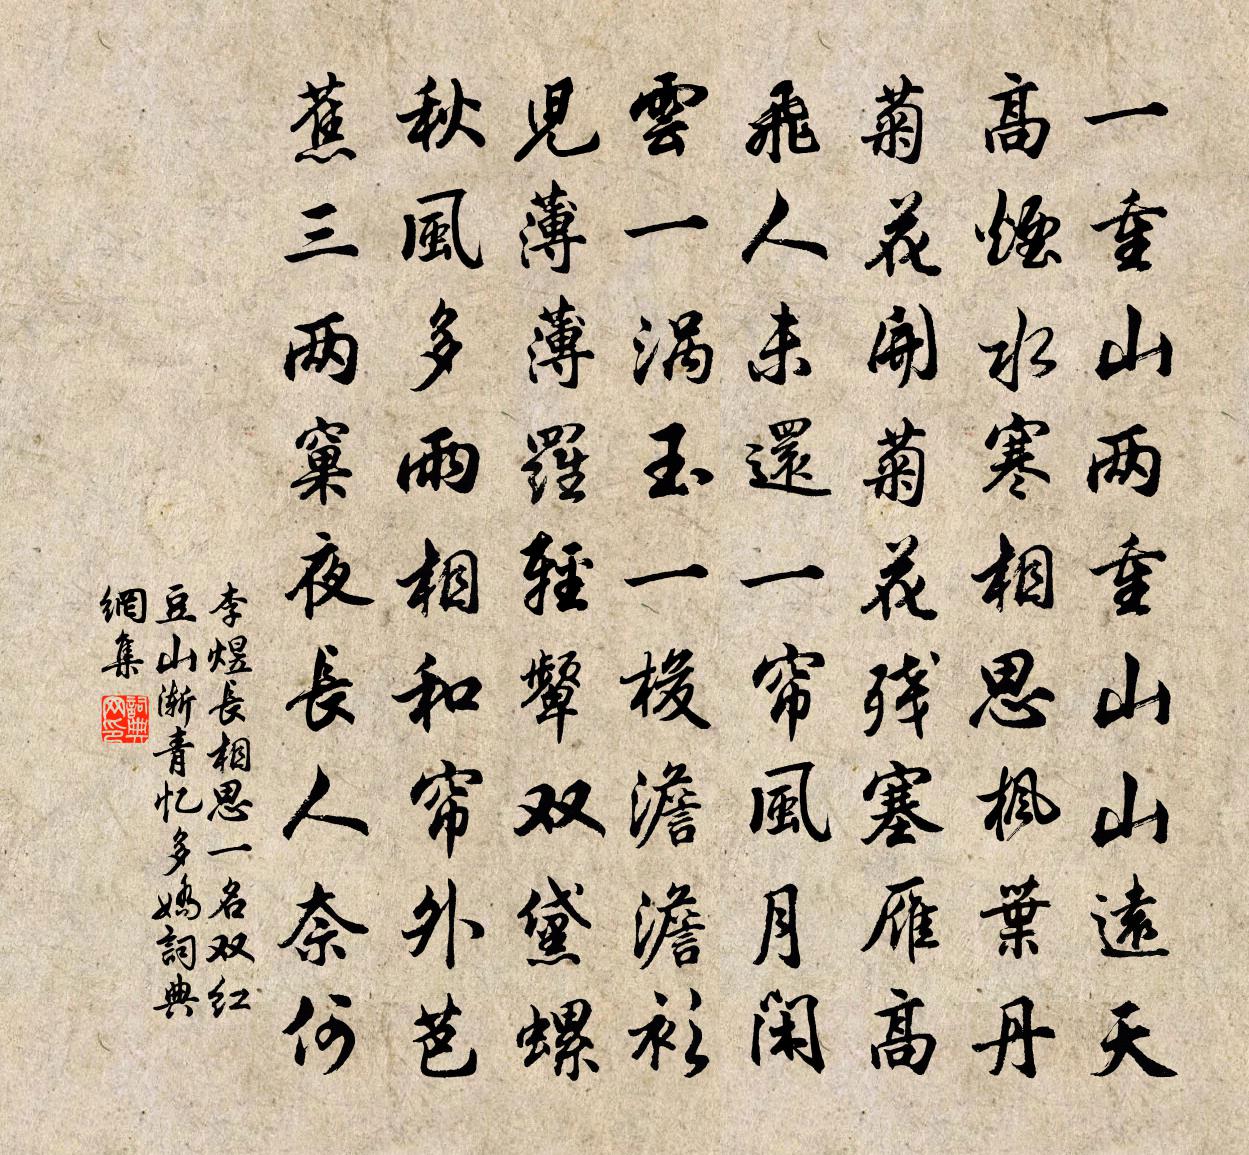 一重山两重山山遠天
高煙水寒相思楓葉丹
菊花開菊花残塞雁高
飛人未還一帘風月閑
雲一涡玉一梭澹澹衫
児薄薄羅輕顰双黛螺
秋風多雨相和帘外芭
蕉三两窠夜長人奈何
李煜長相思一名双红
豆山漸青忆多嬌詞典
網集
詞典网印